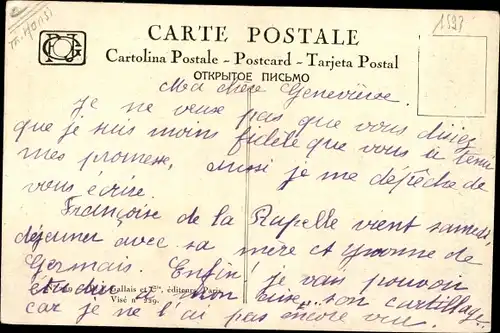 Th. Hansi
1593
CARTE POSTALE
Cartolina Postale - Postcard - Tarjeta Postal
ОТКРЫТОЕ ПИСЬМО
Ma chère Geneviève.
Je ne veux pas que vous disiez
que je suis moins fidèle que vous à tenir
mes promesse, aussi je me dépêche de
vous écrire.
Françoise de la Rapelle vient samedi
déjeuner avec sa mère et Yvonne de
Germais. Enfin je vais pouvoir
Gallais et Cie, éditeurs, Paris
Visé nº 229.
mon son cartillage
car je ne l'ai pas encore vue